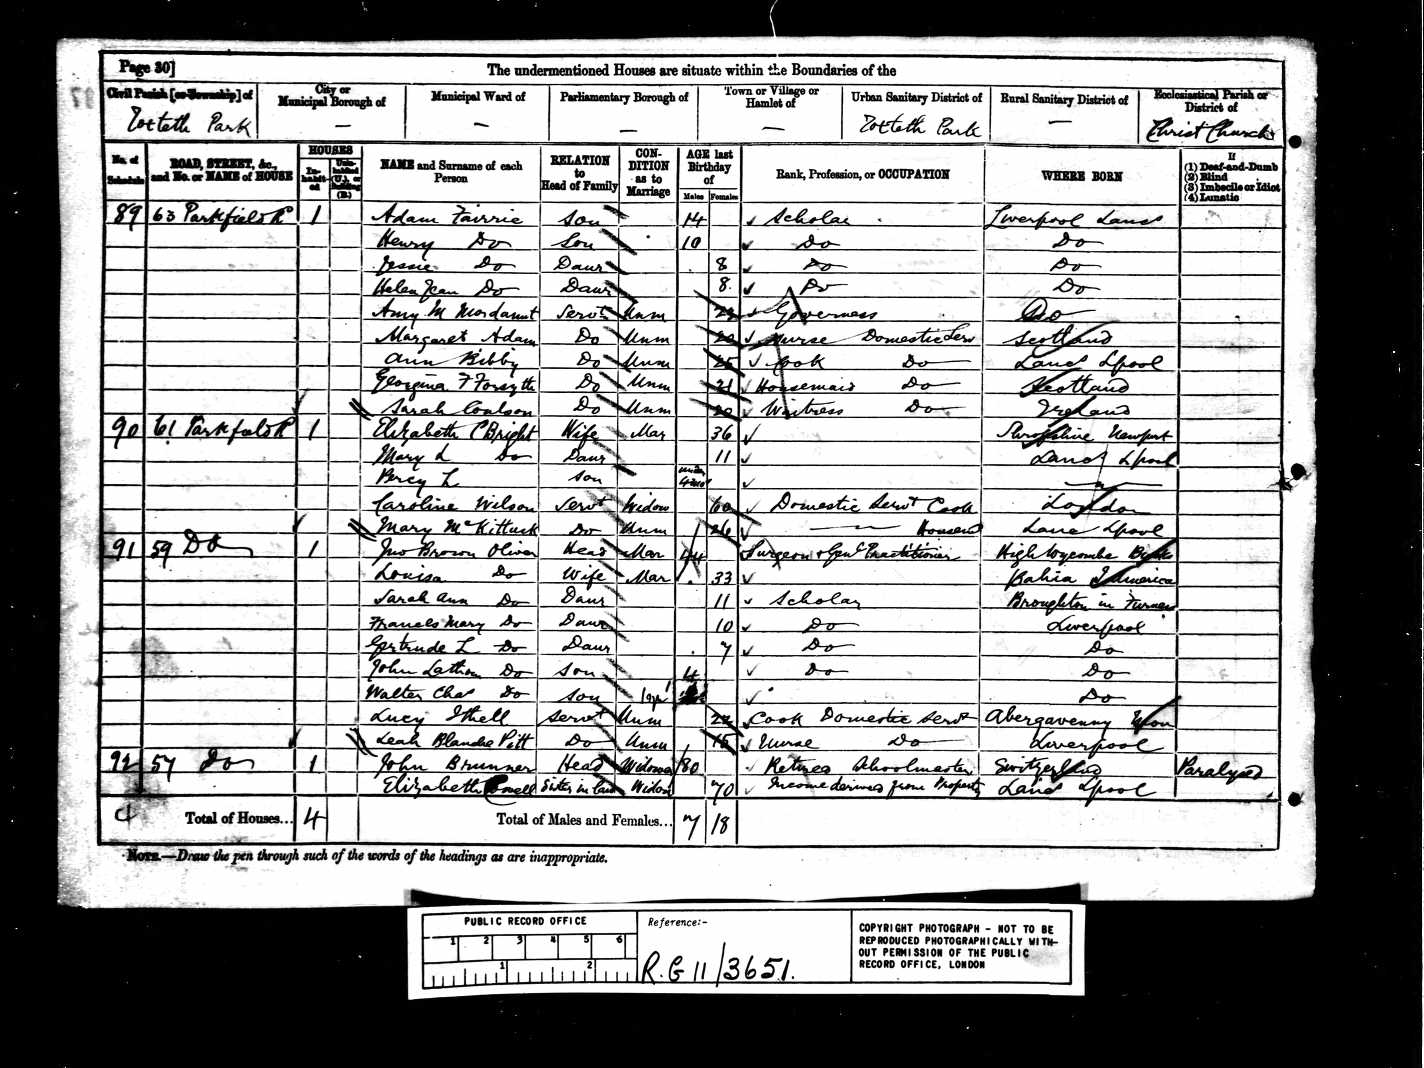 Page 30]
The undermentioned Houses are situate within the Boundaries of the
Civil Parish [or Township] of City or Municipal Borough of Municipal Ward of Parliamentary Borough of Town or Village or Hamlet of Urban Sanitary District of Rural Sanitary District of Ecclesiastical Parish or District of
Toxteth Park — — — — Toxteth Park — Christ Church
No. of Schedule ROAD, STREET, &c., and No. or NAME of HOUSE HOUSES Inhabited Uninhabited (U.), or Building (B.) NAME and Surname of each Person RELATION to Head of Family CONDITION as to Marriage AGE last Birthday of Males Females Rank, Profession, or OCCUPATION WHERE BORN If (1) Deaf-and-Dumb (2) Blind (3) Imbecile or Idiot (4) Lunatic
89 63 Parkfield Rd 1 Adam Fairrie Son 14 Scholar Liverpool Lancs
Henry Do Son 10 Do Do
Jessie Do Daur 8 Do Do
Helen Jean Do Daur 8 Do Do
Amy M Mordaunt Servt Unm Governess Do
Margaret Adam Do Unm Nurse Domestic Serv Scotland
Ann Kibby Do Unm 25 Cook Do Lancs Lpool
Georgina F Forsyth Do Unm 21 Housemaid Do Scotland
Sarah Coulson Do Unm 20 Waitress Do Ireland
90 61 Parkfield Rd 1 Elizabeth C Bright Wife Mar 36 Shropshire Newport
Mary L Do Daur 11 Lancs Lpool
Percy L Son under
Caroline Wilson Servt Widow 60 Domestic Servt Cook London
Mary McKittuck Do Unm 26 Housemd Lanc Lpool
91 59 Do 1 Jno Brown Oliver Head Mar 44 Surgeon & Genl Practitioner High Wycombe Bucks
Louisa Do Wife Mar 33 Bahia S America
Sarah Ann Do Daur 11 Scholar Broughton in Furness
Frances Mary Do Daur 10 Do Liverpool
Gertrude L Do Daur 7 Do Do
John Latham Do Son 4 Do Do
Walter Chas Do Son Do
Lucy Ithell Servt Unm 22 Cook Domestic Servt Abergavenny Mon
Leah Blanche Pitt Do Unm 15 Nurse Do Liverpool
92 57 Do 1 John Brunner Head Widower 80 Retired Schoolmaster Switzerland Paralysed
Elizabeth Sister in law Widow 70 Income derived from Property Lancs Lpool
4 Total of Houses... 4 Total of Males and Females... 7 18
NOTE.—Draw the pen through such of the words of the headings as are inappropriate.
PUBLIC RECORD OFFICE
1 2 3 4 5 6
1 2
Reference:-
R.G 11/3651.
COPYRIGHT PHOTOGRAPH - NOT TO BE
REPRODUCED PHOTOGRAPHICALLY WITH-
OUT PERMISSION OF THE PUBLIC
RECORD OFFICE, LONDON